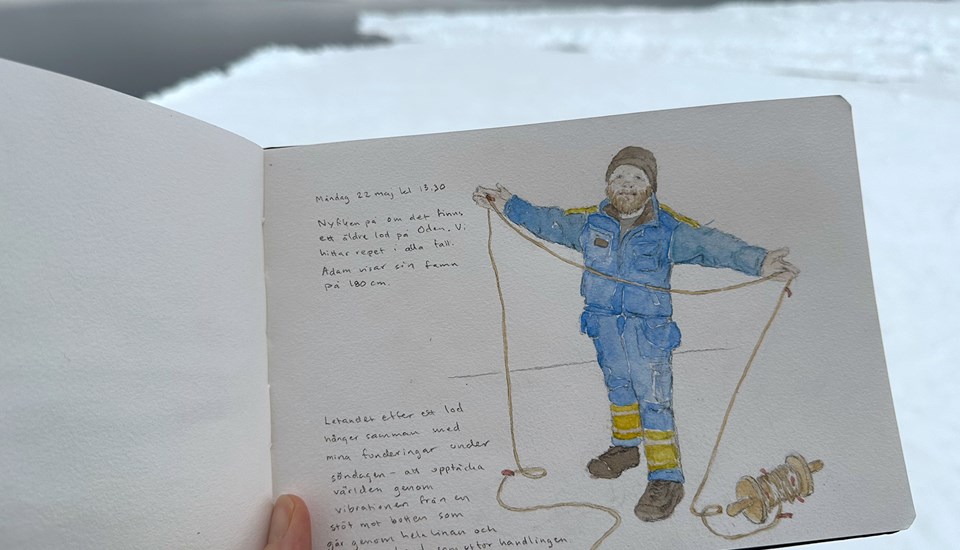 Måndag 22 maj kl 13.30
Nyfiken på om det finns
ett äldre lod på Oden. Vi
hittar repet i alla fall.
Adam visar sin famn
på 180 cm.
Letandet efter ett lod
hänger samman med
mina funderingar under
söndagen - att upptäcka
världen genom
vibrationen från en
stöt mot botten som
går genom hela linan och
som utför handlingen.